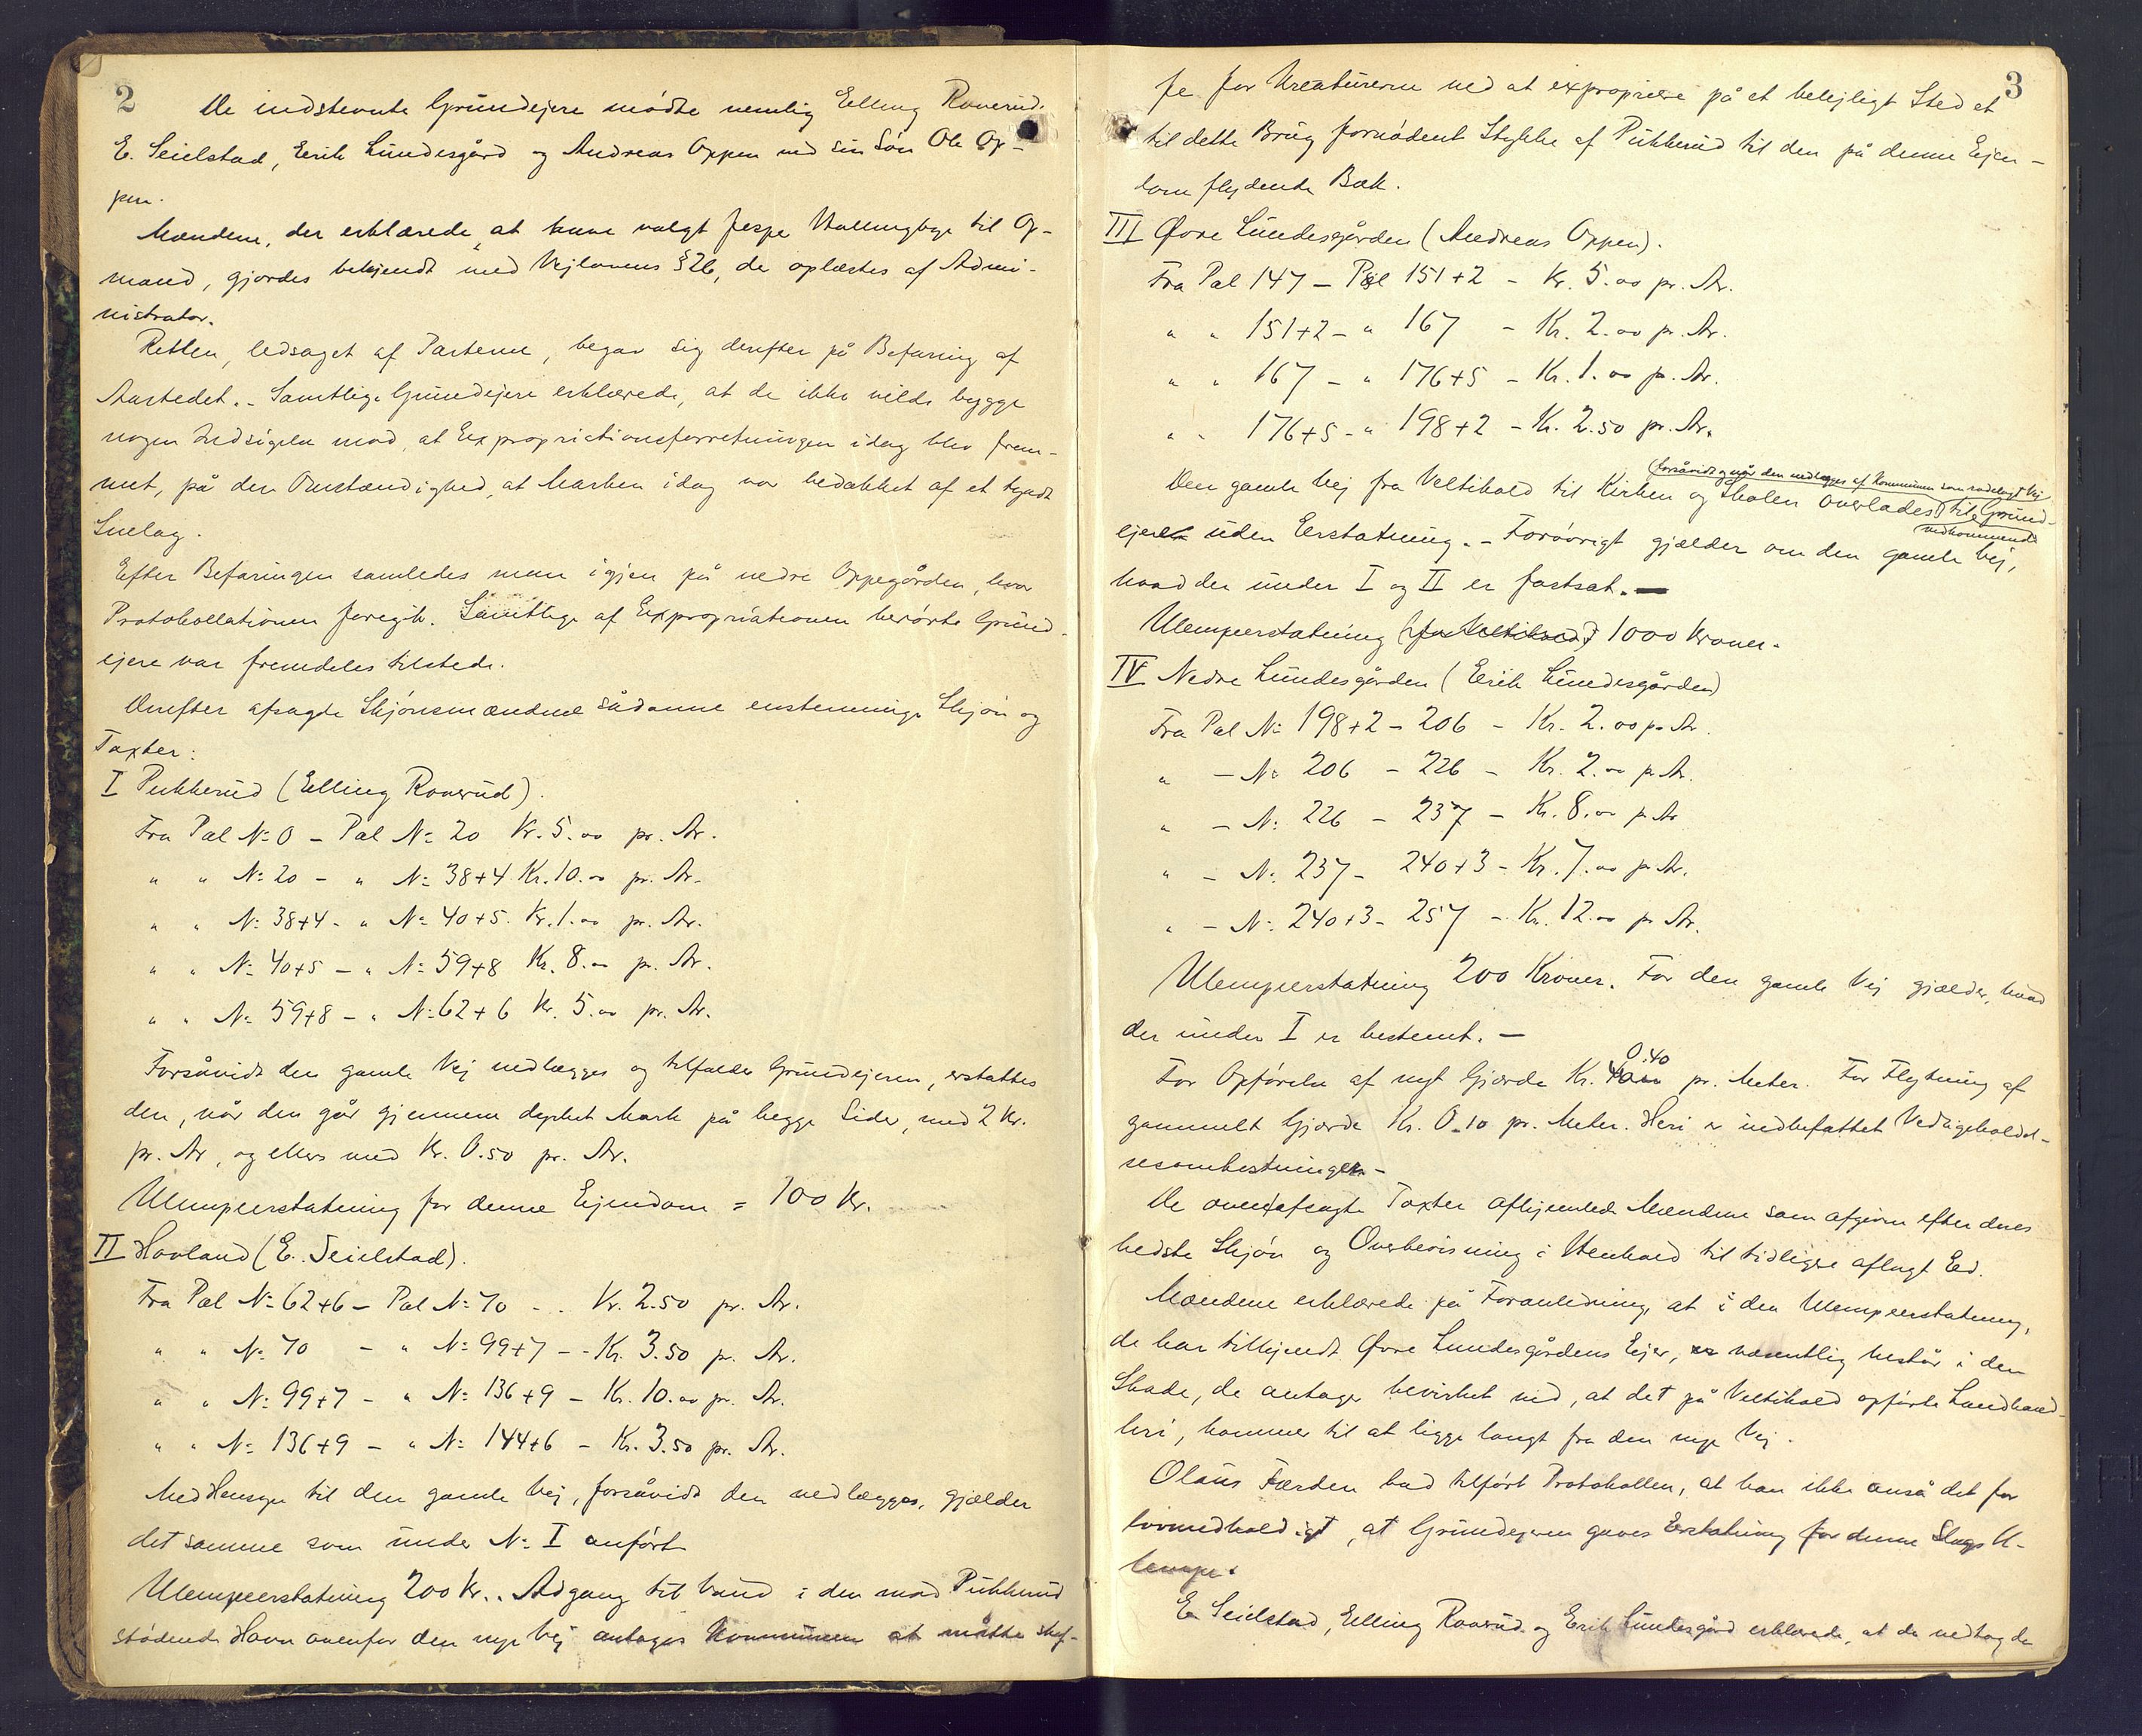 2
De indstevnte Grundejere mödte nemlig Elling Roverud.
E. Seielstad, Erik Lundesgård og Andreas Oppen ved sin Sön Ole Op-
pen.
Mændene, der erklærede at have valgt Jesper Hallingbye til Op-
mand, gjordes bekjendt med Vejlovens § 26, der oplæstes af Admi-
nistrator.
Retten, ledsaget af Parterne, begav sig derefter på Befaring af
Aastedet. - Samtlige Grundejere erklærede, at de ikke vilde bygge
nogen Indsigelse mod, at Expropriationsforretningen idag blev frem-
met, på den Omstændighed, at Marken idag var bedækket af et tyndt
Snelag.
Efter Befaringen samledes man igjen på nedre Oppegården, hvor
Protokollationen foregik. Samtlige af Expropriationen berörte Grund-
ejere var fremdeles tilstede.
Derefter afsagde Skjönsmændene sådanne enstemmige Skjön og
Taxter:
I Pukkerud (Elling Roverud).
Fra Pæl No 0 - Pæl No 20 Kr. 5.00 pr. Ar.
" " No 20 - " No 38+4 Kr. 10.00 pr. Ar.
" " No 38+4 - " No 40+5. Kr. 1.00 pr. Ar.
" " No 40+5 - " No 59+8 Kr. 8.00 pr. Ar.
" " No 59+8 - " No 62+6 Kr. 5.00 pr. Ar.
Forsåvidt den gamle Vej nedlægges og tilfalder Grundejeren, erstattes
den, når den går gjennem dyrket Mark på begge Sider, med 2 Kr.
pr. Ar, og ellers med Kr. 0.50 pr. Ar.
Ulempeerstatning for denne Ejendom = 100 Kr.
II Hovland (E. Seielstad).
Fra Pæl No 62+6 - Pæl No 70 - . Kr. 2.50 pr. Ar.
" " No 70 - " No 99+7 - - Kr. 3.50 pr. Ar.
" " No 99+7 - " No 136+9 - Kr. 10.00 pr. Ar.
" " No 136+9 - " No 144+6 - Kr. 3.50 pr. Ar.
Med Hensyn til den gamle Vej, forsåvidt den nedlægges, gjælder
det samme som under No I anfört.
Ulempeerstatning 200 Kr.. Adgang til Vand i den mod Pukkerud
stödende Havn ovenfor den nye Vej antages Kommunen at måtte skaf-
3
fe for Kreaturerne ved at expropriere på et belejligt Sted et
til dette Brug fornödent Stykke af Pukkerud til den på denne Ejen-
dom flydende Bæk.
III Övre Lundesgården (Andreas Oppen).
Fra Pæl 147 - Pæl 151+2 - Kr. 5.00 pr. Ar.
" " 151+2 - " 167 - Kr. 2.00 pr. Ar.
" " 167 - " 176+5 - Kr. 1.00 pr. Ar.
" " 176+5 - " 198+2 - Kr. 2.50 pr. Ar.
(forsåvidt og når den nedlægges af Kommunen som rodelagt Vej
Den gamle Vej fra Veltikold til Kirken og Skolen overlades) til Grund-
vedkommende
ejere uden Erstatning. - Forövrigt gjælder om den gamle Vej,
hvad der under I og II er fastsat. -
Ulempeerstatning (for Veltikold) 1000 Kroner.
IV Nedre Lundesgården (Erik Lundesgården)
Fra Pæl No 198+2 - 206 - Kr. 2.00 pr. Ar.
" - No 206 - 226 - Kr. 2.00 pr. Ar.
" - No 226 - 237 - Kr. 8.00 pr. Ar
" - No 237 - 240+3 - Kr. 7.00 pr. Ar.
" - No 240+3 - 257 - Kr. 12.00 pr Ar.
Ulempeerstatning 200 Kroner. For den gamle Vej gjælder, hvad
der under I er bestemt. -
0.40
For Opförelse af nyt Gjerde Kr. pr. Meter. For Flytning af
gammelt Gjerde Kr. 0.10 pr. Meter. Heri er indbefattet Vedligeholdel-
sesomkostninger. -
De ovenafsagte Taxter afhjemlede Mændene som afgivne efter deres
bedste Skjön og Overbevisning i Henhold til tidligere aflagt Ed.
Mændene erklærede på Foranledning, at i den Ulempeerstatning,
de har tilkjendt Övre Lundesgårdens Ejer, væsentlig består i den
Skade, de antager bevirket ved, at det på Veltikold opförte Landhand-
leri, kommer til at ligge langt fra den nye Vej.
Olaus Færden bad tilfört Protokollen, at han ikke anså det for
lovmedholdigt, at Grundejeren gaves Erstatning for denne Slags U-
lempe.
E. Seielstad, Elling Roverud og Erik Lundesgård erklærede, at de vedtog de